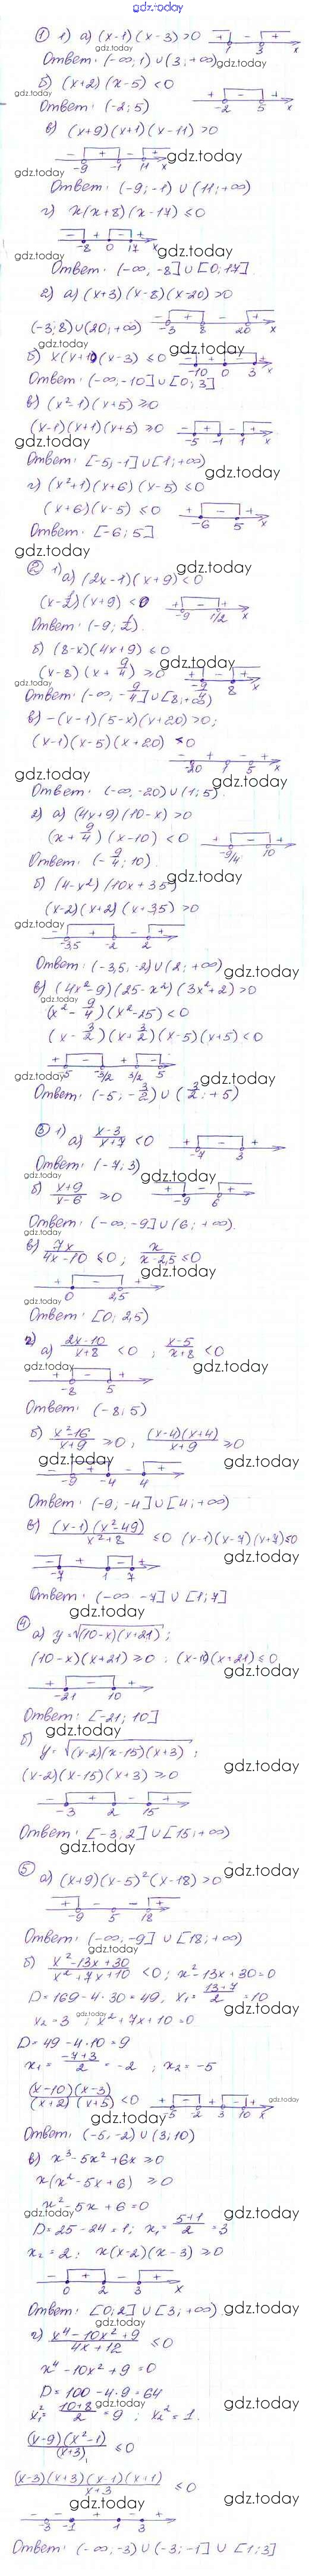 gdz.today
① 1) а) (x-1)(x-3)>0
Ответ: (-∞; 1) ∪ (3; +∞)
б) (x+2)(x-5)<0
Ответ: (-2; 5)
в) (x+9)(x+1)(x-11)>0
Ответ: (-9; -1) ∪ (11; +∞)
г) x(x+8)(x-17)≤0
Ответ: (-∞, -8] ∪ [0; 17]
2) а) (x+3)(x-8)(x-20)>0
(-3; 8) ∪ (20; +∞)
б) x(x+10)(x-3)≤0
Ответ: (-∞; -10] ∪ [0; 3]
в) (x²-1)(x+5)≥0
(x-1)(x+1)(x+5)≥0
Ответ: [-5; -1] ∪ [1; +∞)
г) (x²+1)(x+6)(x-5)≤0
(x+6)(x-5)≤0
Ответ: [-6; 5]
② 1) а) (2x-1)(x+9)<0
Ответ: (-9; ½).
б) (8-x)(4x+9)≤0
(x-8)(x+9/4)≥0
Ответ: (-∞; -9/4] ∪ [8; +∞)
в) -(x-1)(5-x)(x+20)>0;
(x-1)(x-5)(x+20)<0
Ответ: (-∞; -20) ∪ (1; 5).
2) а) (4x+9)(10-x)>0
(x+9/4)(x-10)<0
Ответ: (-9/4; 10).
б) (4-x²)(10x+35)
(x-2)(x+2)(x+3,5)>0
Ответ: (-3,5; -2) ∪ (2; +∞)
в) (4x²-9)(25-x²)(3x²+2)>0
(x²-9/4)(x²-25)<0
(x-3/2)(x+3/2)(x-5)(x+5)<0
Ответ: (-5; -3/2) ∪ (3/2; +5)
③ 1) а) (x-3)/(x+7)<0
Ответ: (-7; 3)
б) (x+9)/(x-6)≥0
Ответ: (-∞, -9] ∪ (6; +∞).
в) 7x/(4x-10)≤0; x/(x-2,5)≤0
Ответ: [0; 2,5)
2) а) (2x-10)/(x+8)<0; (x-5)/(x+8)<0
Ответ: (-8; 5)
б) (x²-16)/(x+9)≥0; (x-4)(x+4)/(x+9)≥0
Ответ: (-9; -4] ∪ [4; +∞)
в) (x-1)(x²-49)/(x²+8)≤0 (x-1)(x-7)(x+7)≤0
Ответ: (-∞ -7] ∪ [1; 7]
④ а) y=√(10-x)(x+21);
(10-x)(x+21)≥0; (x-10)(x+21)≤0
Ответ: [-21; 10]
б) y=√(x-2)(x-15)(x+3);
(x-2)(x-15)(x+3)≥0
Ответ: [-3, 2] ∪ [15; +∞)
⑤ а) (x+9)(x-5)²(x-18)>0
Ответ: (-∞; -9] ∪ [18; +∞)
б) (x²-13x+30)/(x²+7x+10)<0; x²-13x+30=0
D=169-4·30=49, x₁=(13+7)/2=10
x₂=3; x²+7x+10=0
D=49-4·10=9
x₁=(-7+3)/2=-2; x₂=-5
(x-10)(x-3)/(x+2)(x+5)<0
Ответ: (-5, -2) ∪ (3; 10)
в) x³-5x²+6x≥0
x(x²-5x+6)≥0
x²-5x+6=0
D=25-24=1; x₁=(5+1)/2=3
x₂=2; x(x-2)(x-3)≥0
Ответ: [0; 2] ∪ [3; +∞)
г) (x⁴-10x²+9)/(4x+12)≤0
x⁴-10x²+9=0
D=100-4·9=64
x₁²=(10+8)/2=9; x₂²=1.
(x-9)(x²-1)/(x+3)≤0
(x-3)(x+3)(x-1)(x+1)/(x+3)≤0
Ответ: (-∞, -3) ∪ (-3; -1] ∪ [1; 3]